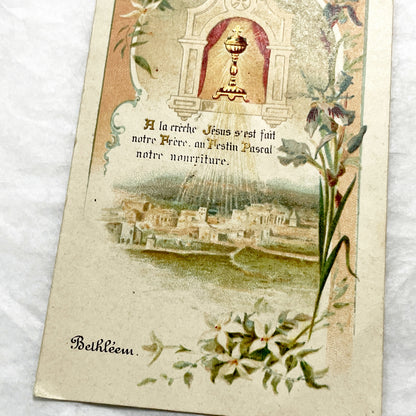 A la crèche Jésus s'est fait
notre Frère, au Festin Pascal
notre nourriture.
Bethléem.